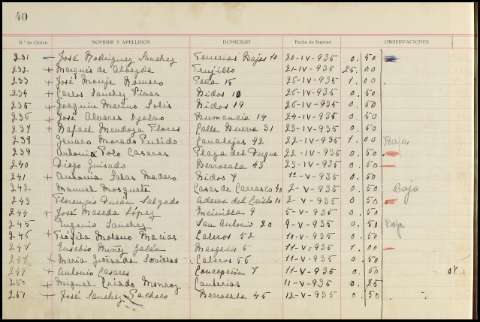 40
Nº de Orden NOMBRE Y APELLIDOS DOMICILIO Fecha de Ingreso OBSERVACIONES
231 — José Rodríguez Sanchez Bajos 10 20-IV-935 0.50
232 + Marqués de Albayda Trujillo 21-IV-935 25.00
233 + José Monje Romero Peña 15 25-IV-935 1.00
234 + Carlos Sanchez Nidos 10 25-IV-935 0.50
235 + Joaquin Merino Solis Nidos 19 26-IV-935 0.50
236 + José Alvarez Numancia 14 24-IV-935 0.50
237 + Rafael Mendoza Flores Calle Nueva 31 25-IV-935 0.50
238 Genaro Morado Pulido Canalejas 42 22-IV-935 1.00 Baja
239 Antonio Polo Casares Plaza del Duque 22-IV-935 0.50
240 Diego Guisado Berrocala 43 23-IV-935 0.50
241 + Antonio Salas Madero Nidos 4 1-V-935 0.50
242 Manuel Mosquete Casas de Carrasco 40 2-V-935 0.50 Baja
243 Florencio Durán Salgado 2-V-935 0.50
244 + José Maceda López 9 5-V-935 0.50
245 Eugenio Sanchez San Antonio 20 9-V-935 0.50 Baja
246 + Moreno Macías Caleros 52 11-V-935 0.50
247 Eusebio Muñoz Margallo 5 11-V-935 1.00
248 + María Caleros 56 11-V-935 0.50
249 + Antonio Casares Concepción 7 11-V-935 0.50
250 + Miguel Criado Monroy Canterias 11-V-935 0.25
251 + José Sanchez Pacheco Berrocala 45 12-V-935 0.50